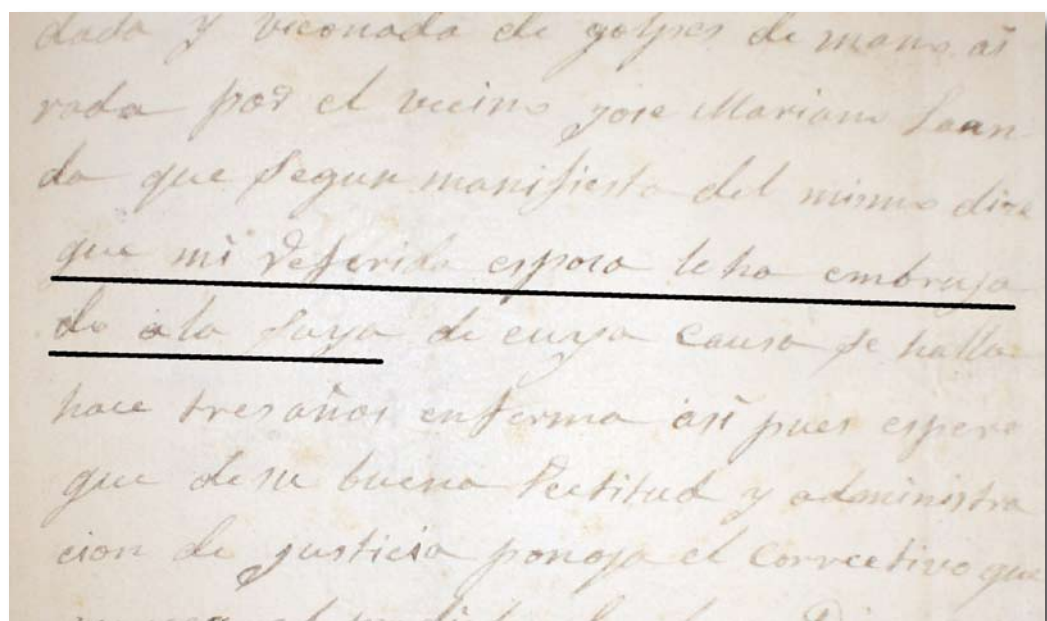 dada y
de golpes de mano ai
rada por el vecino Jose Mariano
da que segun manifiesta del mismo dice
que mi referida esposa le ha embruja
do a la suya de cuya causa se halla
hace tres años enferma asi pues espero
que de su buena rectitud y administra
cion de justicia ponga el correctivo que